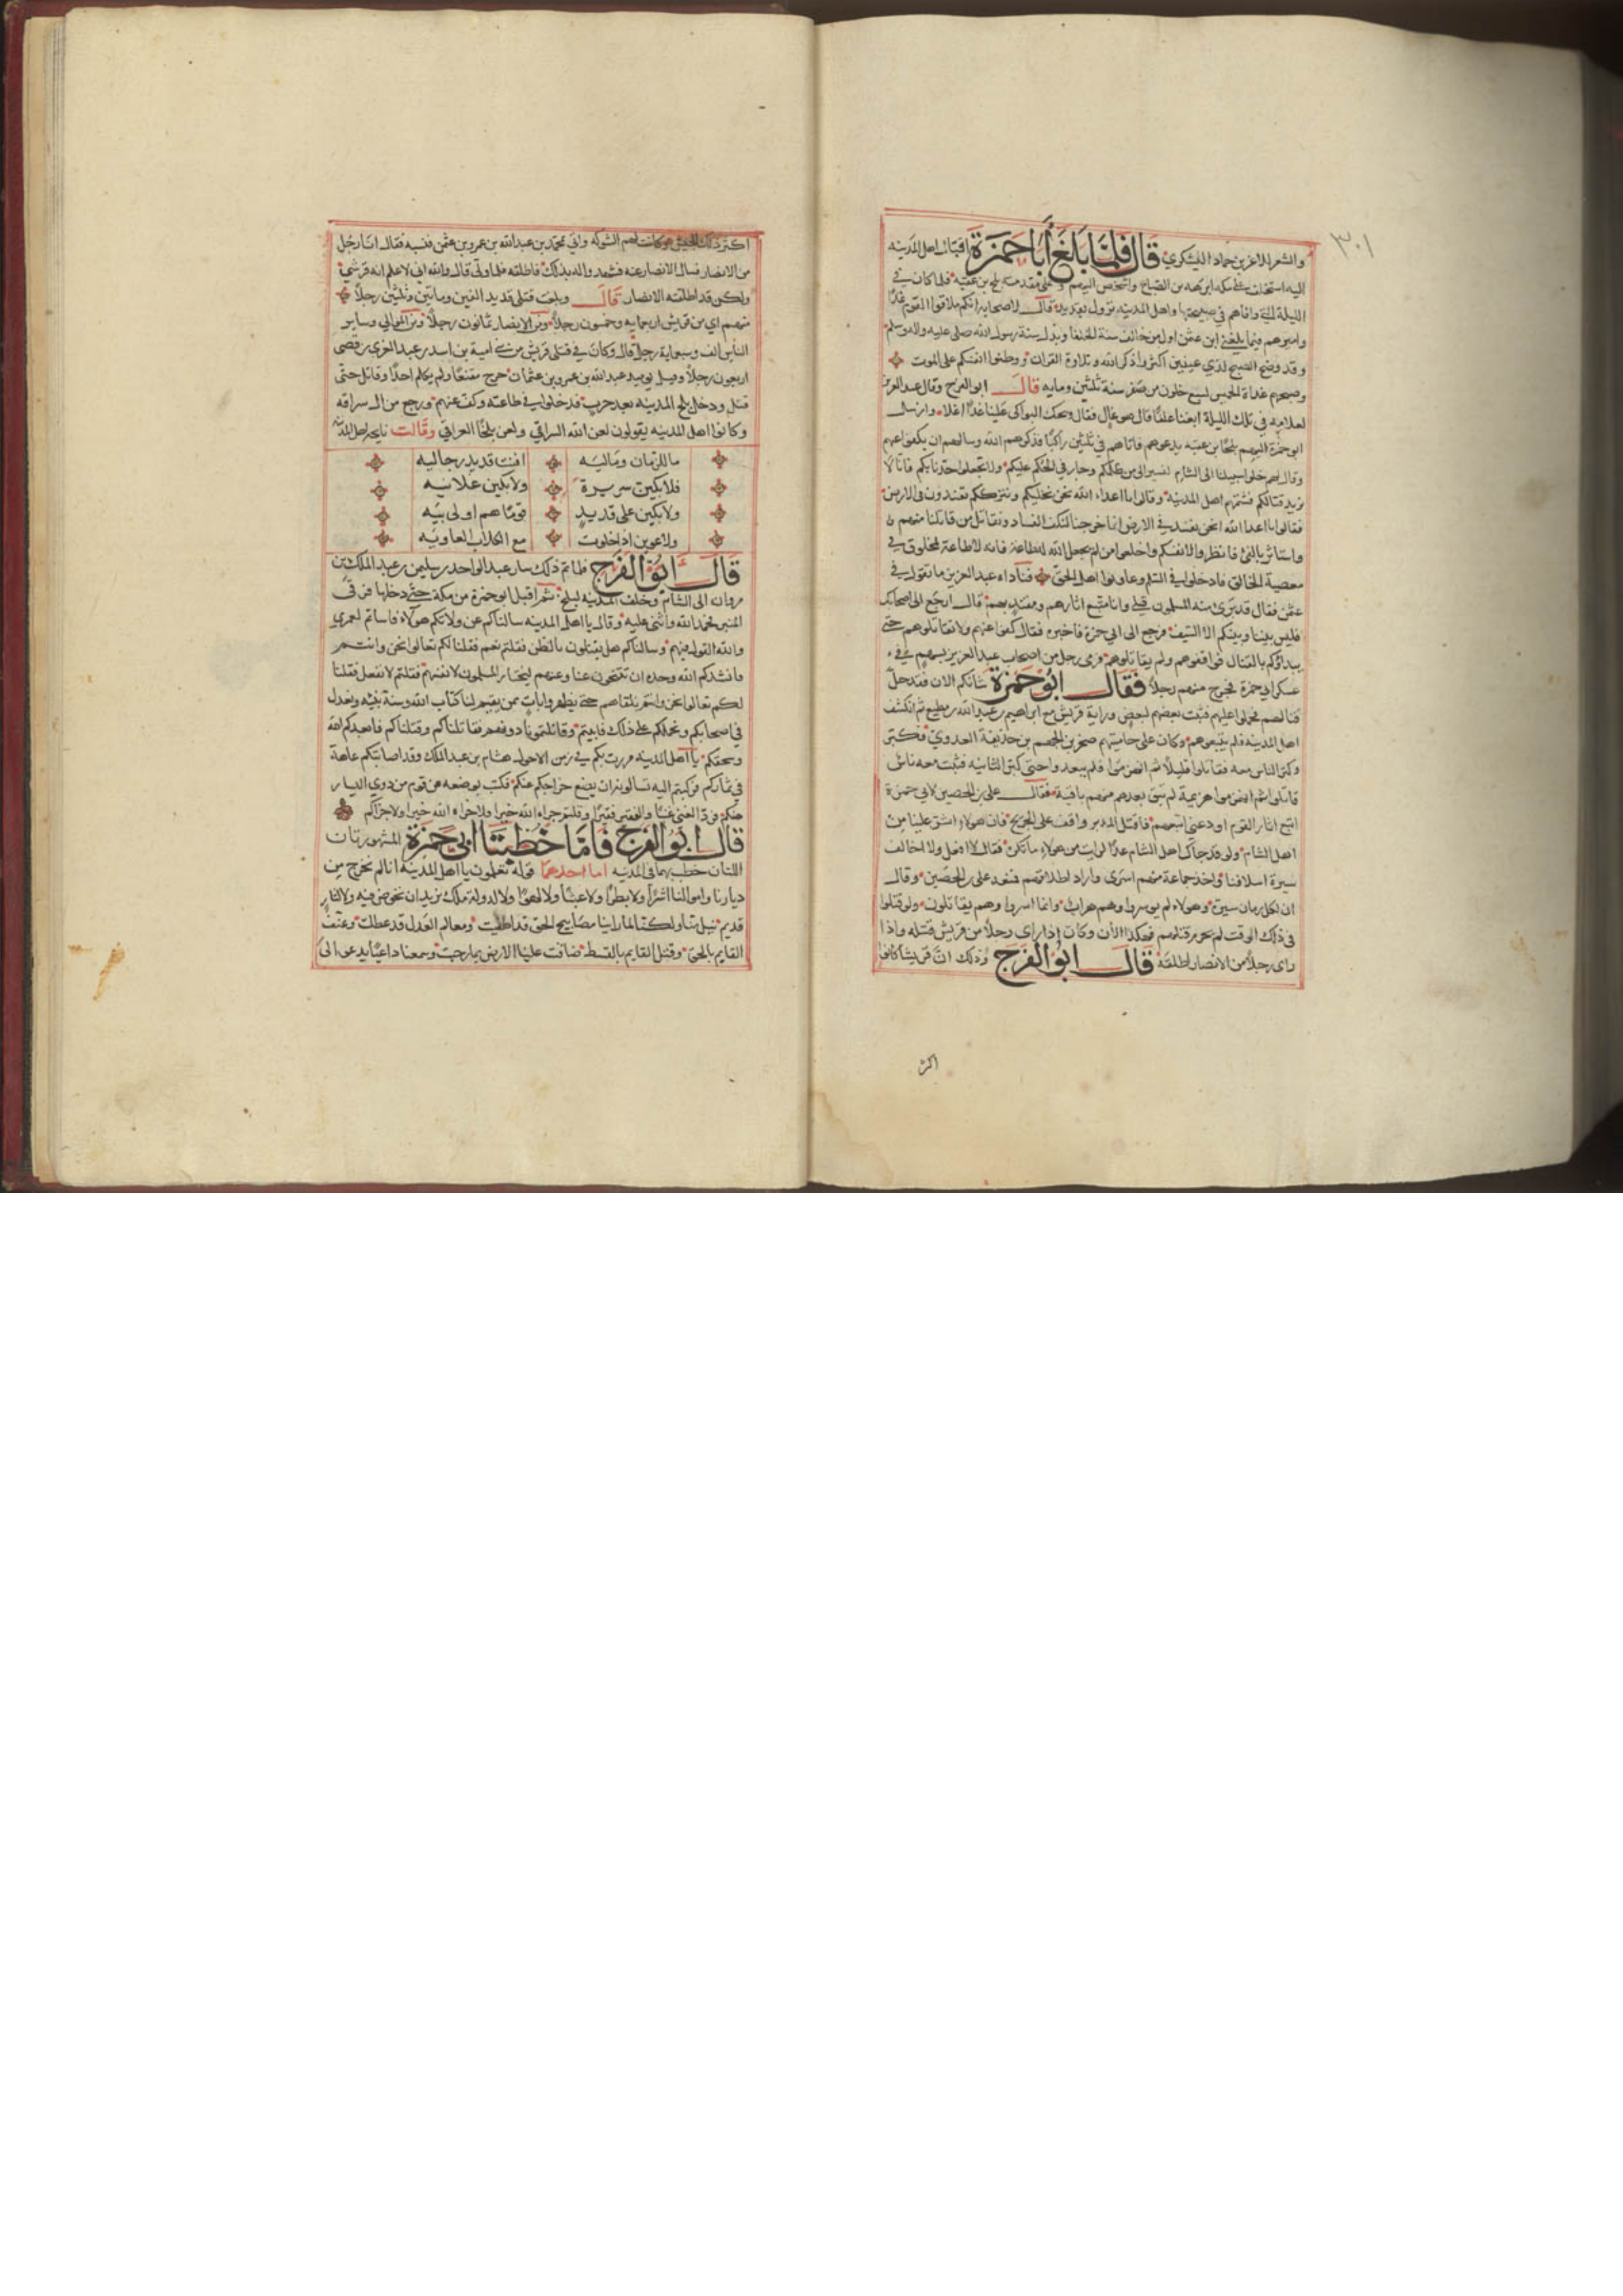 ٣٠١
والشعر للاغر بن حماد اليشكري قال فلما بلغ أبا حمزة اقبال اهل المدينه
اليه استخلف على مكه ابرهه بن الصباح وشخص اليهم وعلى مقدمته بلج بن عقبه فلما كان في
الليلة التي وافاهم في صبيحتها واهل المدينه نزول بقديد قال لاصحابه انكم ملاقوا القوم غدا
واميرهم فيما بلغني ابن عثمن اول من خالف سنة الخلفا وبدل سنة رسول الله صلى عليه واله وسلم
وقد وضح الصبح لذي عينين اكثروا ذكر الله وتلاوة القران ووطنوا انفسكم على الموت
وصبحهم غداة الخميس لسبع خلون من صفر سنة ثلثين ومايه قال ابو الفرج وقال عبد العزيز
لغلامه في تلك الليلة ابغنا علفا قال هو غال فقال ويحك البواكي علينا غدا اغلا وارسل
ابو حمزة اليهم بلج بن عقبه يدعوهم فاتاهم في ثلثين راكبا فذكرهم الله وسالهم ان يكفوا عنهم
وقال لهم خلوا سبيلنا الى الشام لنسير الى من ظلمكم وجار في الحكم عليكم ولا تجعلوا حدنا بكم فانا لا
نريد قتالكم فشتمهم اهل المدينه وقالوا يا اعداء الله نحن نخليكم ونترككم تفسدون في الارض
فقالوا يا اعدا الله انحن نفسد في الارض انما خرجنا لنكف الفساد ونقاتل من قاتلنا منهم
واستاثر بالفئ فانظروا لانفسكم واخلعوا من لم يجعل الله له طاعة فانه لا طاعة لمخلوق في
معصية الخالق فادخلوا في السلم وعاونوا اهل الحق فناداه عبد العزيز ما تقول في
عثمن فقال قد برئ منه المسلمون قبلي وانا متبع اثارهم ومقتد بهم قال ارجع الى اصحابك
فليس بيننا وبينكم الا السيف فرجع الى ابي حمزة فاخبره فقال كفوا عنهم ولا تقاتلوهم حتى
يبداوكم بالقتال فواقفوهم ولم يقاتلوهم فرمى رجل من اصحاب عبد العزيز بسهم في
عسكر ابي حمزة فجرح منهم رجلا فقال ابو حمزة شانكم الان فقد حل
قتالهم فحملوا عليهم فثبت بعضهم لبعض وراية قريش مع ابراهيم بن عبد الله بن مطيع ثم انكشف
اهل المدينه فلم يتبعوهم وكان على حاميتهم صخر بن الجهم بن حذيفة العدوي فكبر
وكبر الناس معه فقاتلوا قليلا ثم انهزموا فلم يبعدوا حتى كبر الثانيه فثبت معه ناس
قاتلوا ثم انهزموا هزيمة لم تبق بعدهم منهم باقية فقال علي بن الحصين لابي حمزة
اتبع اثار القوم او دعني اتبعهم فاقتل المدبر واقف على الجريح فان هولاء اشر علينا من
اهل الشام ولو قد جاك اهل الشام غدا لرايت من هولاء ما تكره فقال لا افعل ولا اخالف
سيرة اسلافنا واخذ جماعة منهم اسرى واراد اطلاقهم فمنعه علي بن الحصين وقال
ان لكل زمان سيرة وهولاء لم يوسروا وهم هراب وانما اسروا وهم يقاتلون ولو قتلوا
في ذلك الوقت لم يحرم قتلهم فهكذا الان وكان اذا راى رجلا من قريش قتله واذا
راى رجلا من الانصار اطلقه قال ابو الفرج وذلك ان قريشا كانوا
اكثر
اكثر ذلك الجيش وكانت لهم الشوكه واتي محمد بن عبد الله بن عمرو بن عثمن فنسبه فقال انا رجل
من الانصار فسال الانصار عنه فشهدوا له بذلك فاطلقه فلما ولى قال والله اني لاعلم انه قرشي
ولكن قد اطلقته الانصار قال وبلغت قتلى قديد الفين وماتين وثلثين رجلا
منهم اي من قريش اربعمايه وخمسون رجلا ومن الانصار ثمانون رجلا ومن الموالي وساير
الناس الف وسبعماية رجل قال وكان في قتلى قريش من بني اسد بن عبد العزى بن قصي
اربعون رجلا وقتل يوميذ عبد الله بن عمرو بن عثمان خرج مقنعا ولم يكلم احدا وقاتل حتى
قتل ودخل بلج المدينه بغير حرب فدخلوا في طاعته وكف عنهم ورجع من ال سراقه
وكانوا اهل المدينه يقولون لعن الله السراقي ولعن بلجا العراقي وقالت نايحة اهل المدينه
ما للزمان وماليه افنت قديد رجاليه
فلابكين سريرة ولابكين علانيه
ولابكين على قديد قوما هم اولى بيه
ولاعوين اذا خلوت مع الكلاب العاويه
قال ابو الفرج فلما تم ذلك سار عبد الواحد بن سليمن بن عبد الملك بن
مروان الى الشام وخلف المدينه لبلج ثم اقبل ابو حمزة من مكة حتى دخلها فرقى
المنبر فحمد الله واثنى عليه وقال يا اهل المدينه سالناكم عن ولاتكم هولاء فاساتم لعمري
والله القول فيهم وسالناكم هل يقتلون بالظن فقلتم نعم فقلنا لكم تعالوا نحن وانتم
فانشدكم الله وحده ان تتنحون عنا وعنهم ليختار المسلمون لانفسهم فقلتم لا نفعل فقلنا
لكم تعالوا نحن وانتم نلقاهم حتى نظهر وايات بمن يقيم لنا كتاب الله وسنة نبيه ويعدل
في احكامكم ويحملكم على ذلك فابيتم وقاتلتمونا دونهم فقاتلناكم وقتلناكم فابعدكم الله
وسحقكم يا اهل المدينه مررت بكم في زمن الاحول هشام بن عبد الملك وقد اصابتكم عاهة
في ثماركم فركبتم اليه تسالونه ان يضع خراجكم عنكم فكتب بوضعه عن قوم من ذوي اليسار
منكم فزاد الغني غنيا والفقير فقيرا وقلتم جزاه الله خيرا فلا جزاه الله خيرا ولا جزاكم
قال ابو الفرج فاما خطبتا ابي حمزة المشهورتان
اللتان خطب بهما في المدينه اما احدهما قوله تعلمون يا اهل المدينه انا لم نخرج من
ديارنا واموالنا اشرا ولا بطرا ولا عبثا ولا لهوا ولا لدولة ملك نريد ان نخوض فيه ولا لثار
قديم نيل منا ولكنا لما راينا مصابيح الحق قد اطفيت ومعالم العدل قد عطلت وعنف
القايم بالحق وقتل القايم بالقسط ضاقت علينا الارض بما رحبت وسمعنا داعيا يدعو الى